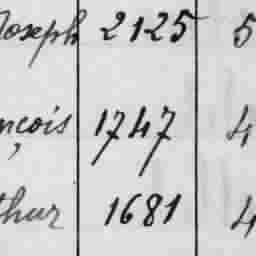 Joseph 2125 5
nçois 1747 4
thur 1681 4